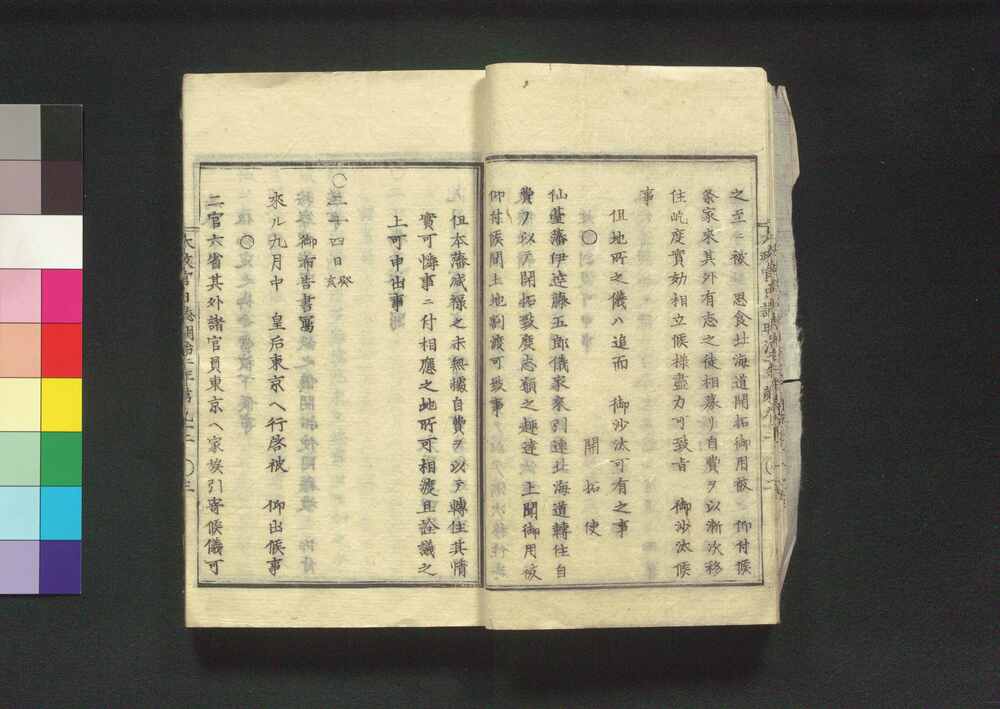 之至ニ被　思食北海道開拓御用被　仰付候
条家来其外有志之徒相募リ自費ヲ以漸次移
住屹度實効相立候様盡力可致旨　御沙汰候
事
但地所之儀ハ追而　御沙汰可有之事
〇　開拓使
仙臺藩伊達藤五郎儀家来引連北海道轉住自
費ヲ以テ開拓致度志願之趣達　上聞御用被
仰付候間土地割渡可致事
但本藩減禄之末無據自費ヲ以テ轉住其情
實可憐事ニ付相應之地所可相渡且詮議之
上可申出事
〇二十四日癸亥
御布告書寫
來ル九月中　皇后東京へ行啓被　仰出候事
〇
二官六省其外諸官員東京へ家族引寄候儀可
太政官日誌明治二年
〇三